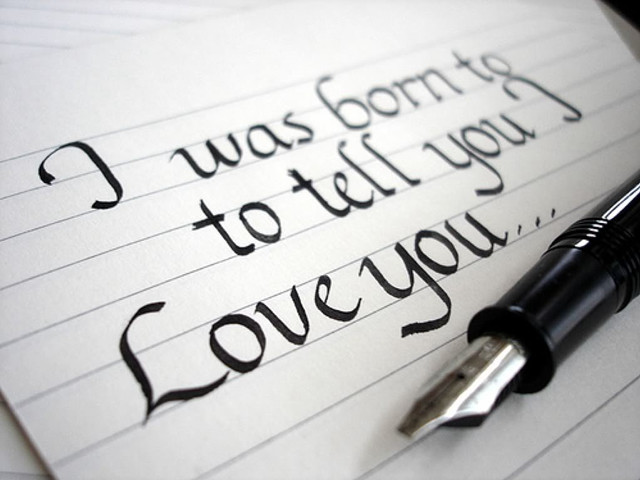 I was born to
to tell you I
Love you...